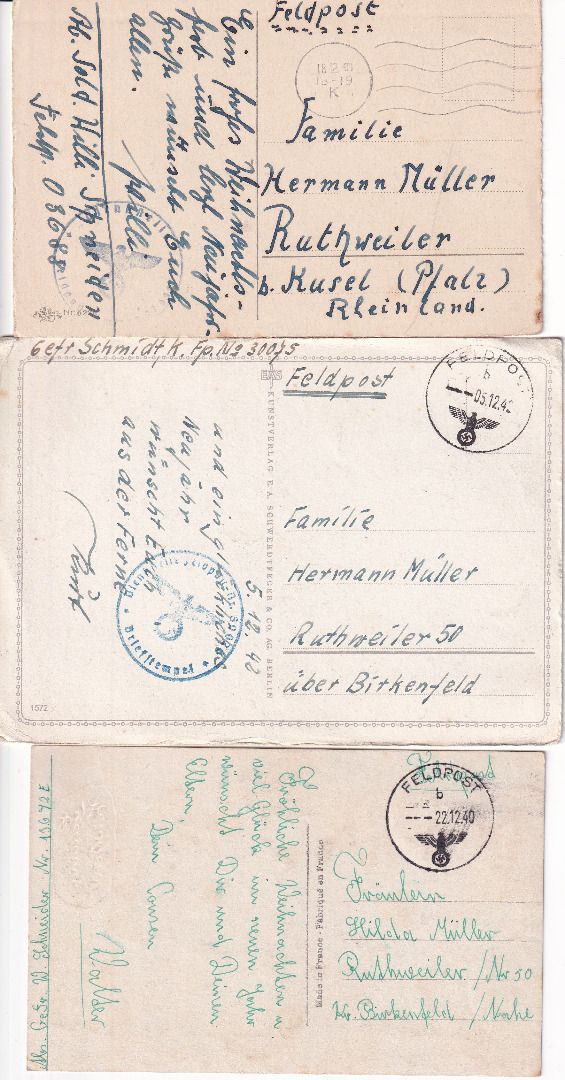 Feldpost
18.12.40
18-19
K
Familie
Hermann Müller
Ruthweiler
b. Kusel (Pfalz)
Rheinland.
Ein frohes Weihnachts-
fest und Neujahrs-
grüße wünscht Euch
allen.
Willi
Ab. Sold. Willi Schneider
Feldp. 03688
Gefr Schmidt K. Fp. No 30075
Feldpost
FELDPOST
b
05.12.42
Familie
Hermann Müller
Ruthweiler 50
über Birkenfeld
KUNSTVERLAG E. A. SCHWERDTFEGER & CO. AG. BERLIN
EAS
5.12.42
und ein glückliches
Neujahr
wünscht Euch
aus der Ferne
Kurt
Briefstempel
1572
FELDPOST
b
22.12.40
Fräulein
Hilda Müller
Ruthweiler/Nr 50
Kr. Birkenfeld/Nahe
Made in France - Fabriqué en France
Fröhliche Weihnachten u.
viel Glück im neuen Jahr
wünscht Dir und Deinen
Eltern,
Dein Cousen
Walter
Abs. Gefr. W. Schneider Nr. 19672E